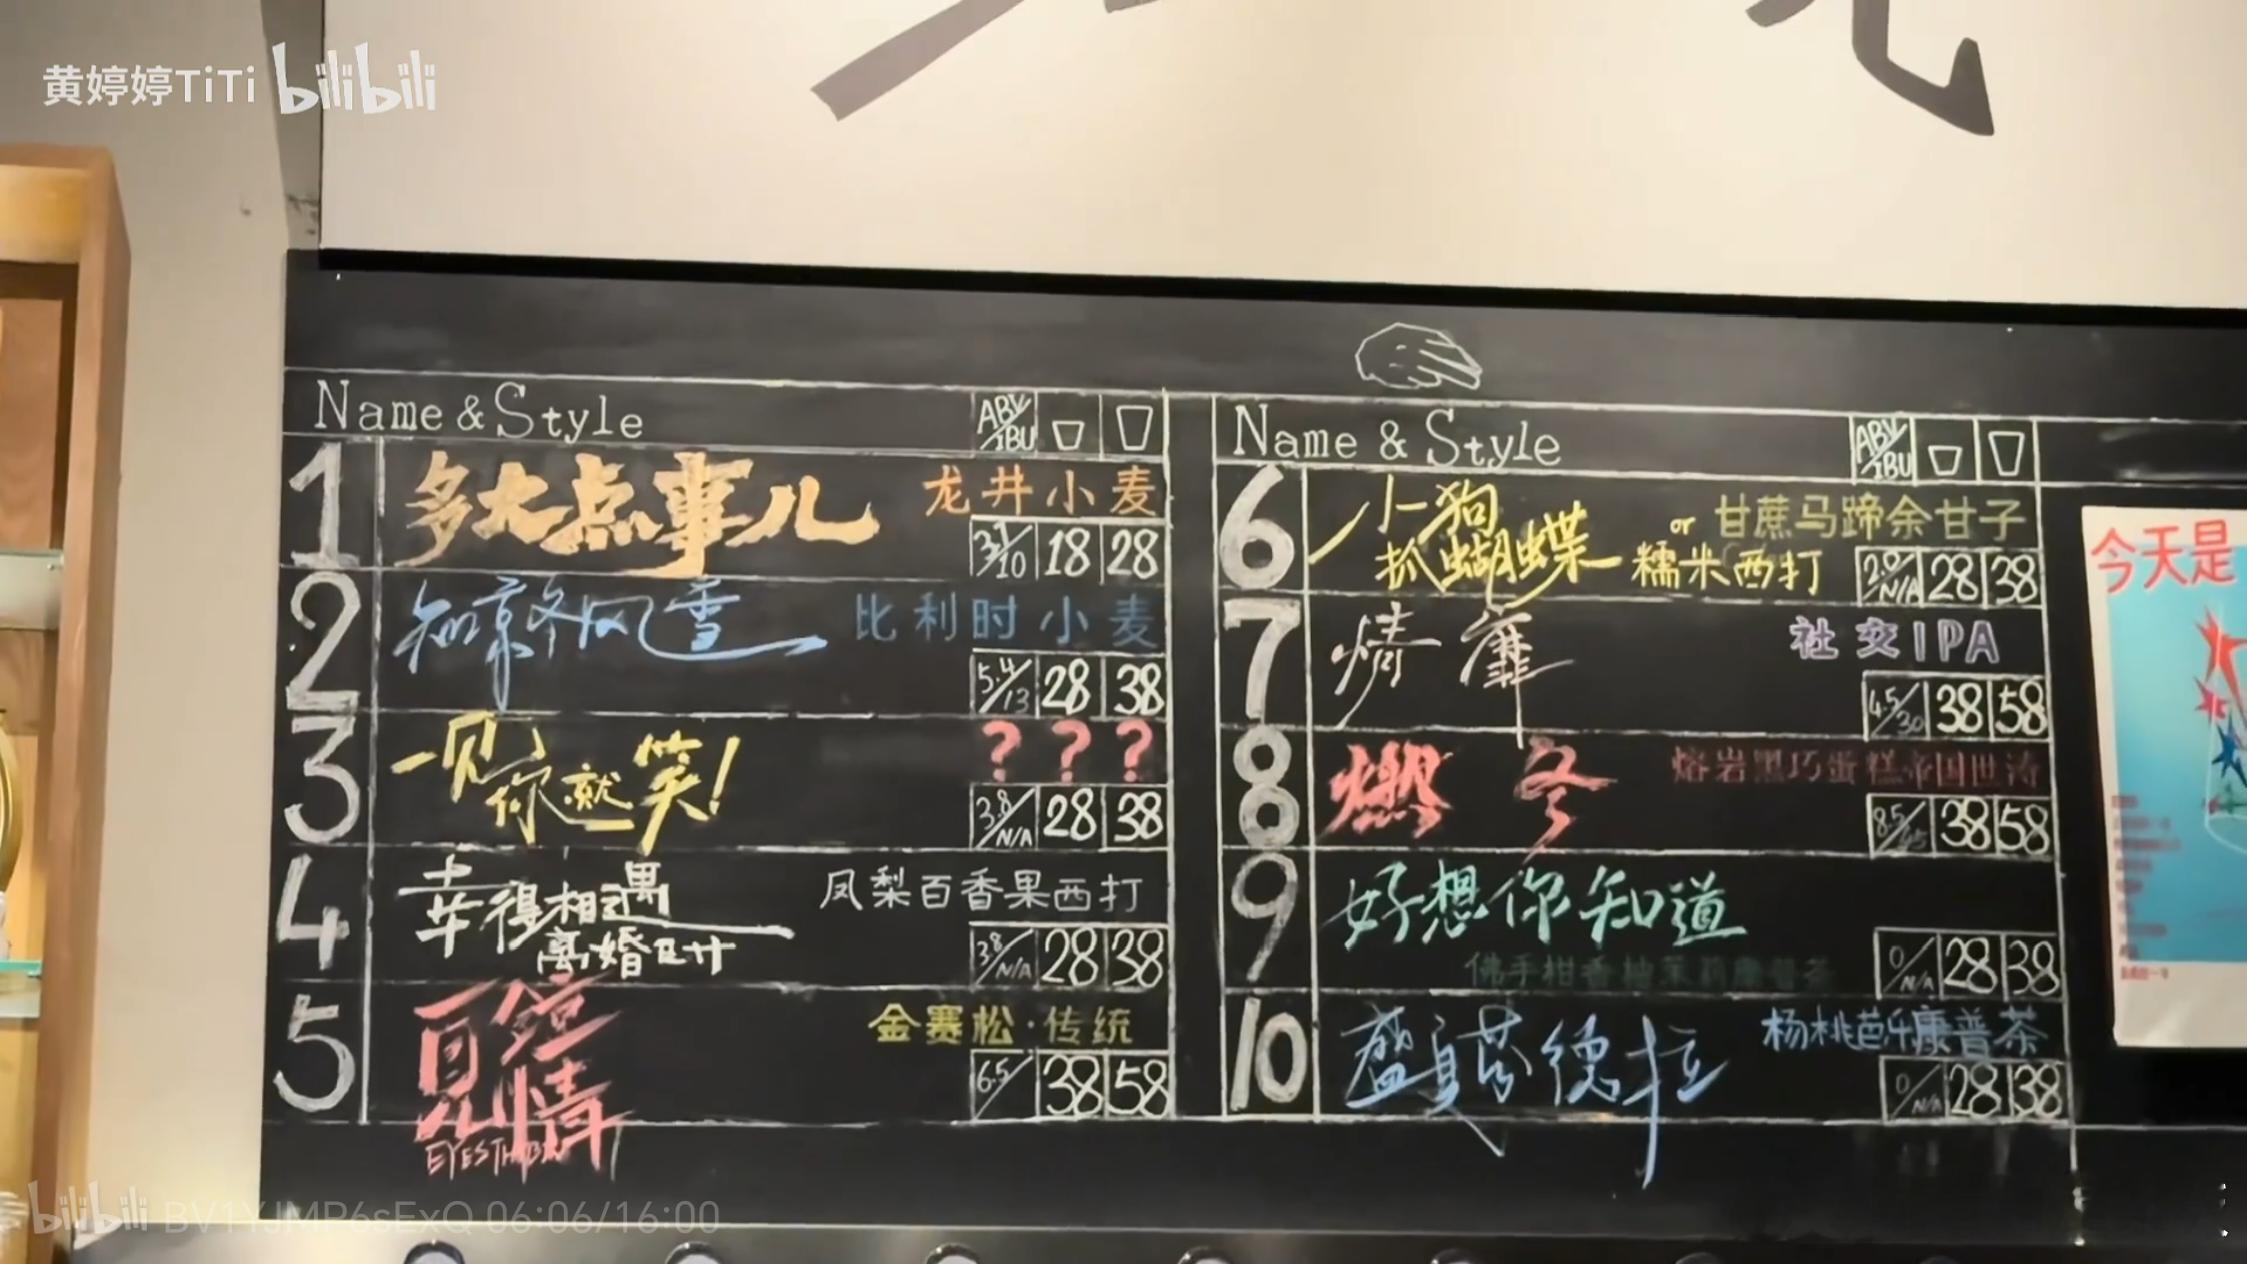 黄婷婷TiTi bilibili
Name & Style ABV/IBU
1 多大点事儿 龙井小麦
3.1/10 18 28
2 知京冬风雪 比利时小麦
5.4/13 28 38
3 一见你就笑! ? ? ?
3.8/N/A 28 38
4 幸得相遇离婚时 凤梨百香果西打
3.8/N/A 28 38
5 百媚 金赛松·传统
6.5/ 38 58
Name & Style ABV/IBU
6 小狗 or 甘蔗马蹄余甘子
抓蝴蝶 糯米西打
2.8/N/A 28 38
7 情靡 社交IPA
4.5/30 38 58
8 燃冬 熔岩黑巧蛋糕帝国世涛
8.5/ 38 58
9 好想你知道
佛手柑香柚茉莉康普茶
0/N/A 28 38
10 德拉 杨桃芭乐康普茶
0/N/A 28 38
今天是
bilibili BV1YJMP6sExQ 06:06/16:00